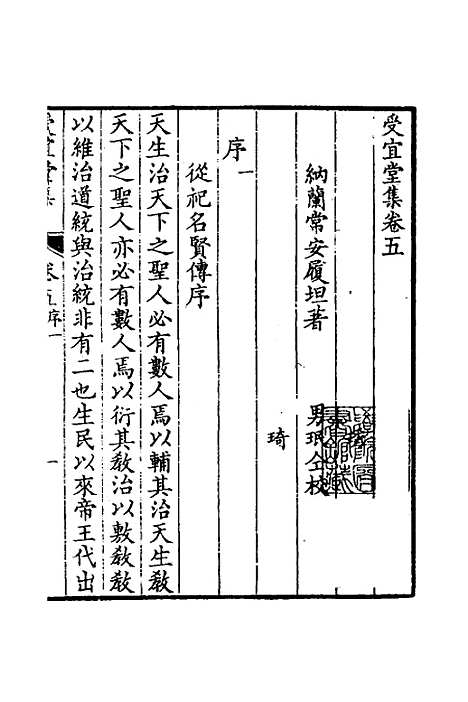 受宜堂集卷五
納蘭常安履坦著
男珉仝校
琦
序一
從祀名賢傳序
天生治天下之聖人必有數人焉以輔其治天生教
天下之聖人亦必有數人焉以衍其教治以敷教教
以維治道統與治統非有二也生民以來帝王代出
受宜堂集
卷五序一
一